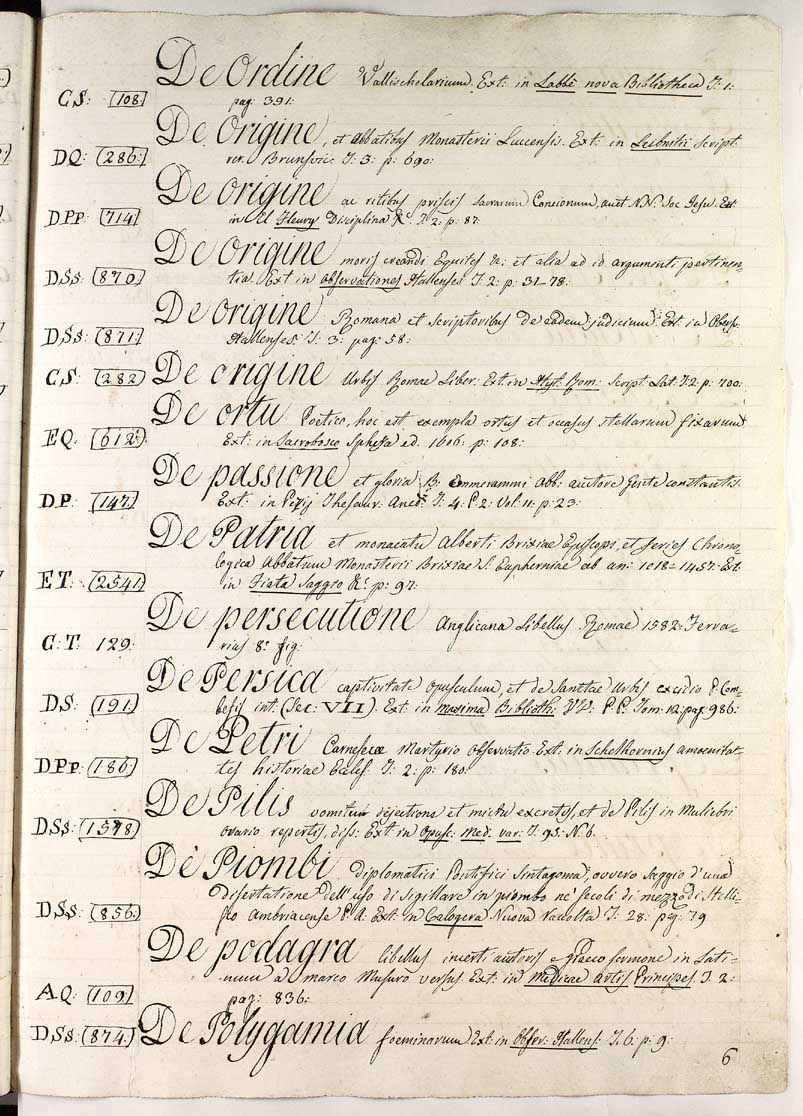 De Ordine Vallischolarium. Ext: in Labbè nova Bibliotheca T: 1:
C S: 108. pag: 391:
De Origine, et Abbatibus Monasterii Luccensis. Ext: in Leibnitii Script:
D Q: 286: rer: Brunsvic: T: 3: p: 690:
De Origine ac ritibus priscis sacrarum Concionum, auct N.N: Soc Jesu. Ext:
D. Pp: 714 in Cl Fleury Disciplina &c. T: 2: p: 87:
De Origine moris creandi Equites &: et alia ad id argumenti pertinen-
D. Ss: 870. tia Ext in observationes Hallenses T: 2: p: 31-78:
De origine Romana et scriptoribus de eadem judicium: Ext: in Obers:
D, Ss: 871: Hallenses: T: 3: pag: 58:
C S: 282 De origine Urbis Romae Liber: Ext: in Hyst: Rom: Script. Lat: T: 2: p: 700:
De ortu Poetico, hoc est, exempla ortus et occasus stellarum fixarum
E Q: 612: Ext: in Sacrobosco Sphera ed. 1606: p: 108:
De passione et gloria B: Emmerammi Abb: auctore gente constantis.
D P: 147: Ext: in Pezij Thesaur: Aned: T: 4: P. 2: Vol: 11: p: 23:
De Patria et monacatu Alberti Brixiae Episcopi, et series Chrono-
logica Abbatum Monasterii Brixiae S. Euphemiae ab an: 1018= 1457: Ext:
E T: 2541. in Fiata Saggio &c: p: 97:
De persecutione Anglicana Libellus Romae 1582: Ferra-
C: T: 129: rius 8: fig:
De Persica captivitate Opusculum, et de Sanctae Urbis excidio P. Com-
D S: 191. befis int: (Sec: VII). Ext: in maxima Biblioth: VV: P.P: Tom: 12: pag 986:
De Petri Carnesecae Martyrio Observatio. Ext: in Schelhornius amoenitat-
D. Pp: 186: tes historiae Eccles. T: 2: p: 180:
De Pilis vomitu dejectione et mictu excretis, et de Pilis in Muliebri
D. Ss: 1578: ovario repertis, diss: Ext: in Opusc: Med. var: T. 95: N 6.
De Piombi diplomatici Pontifici Sintagoma, ovvero saggio d'una
disertatione dell'uso di sigillare in piombo ne' secoli di mezzo di
D. Ss: 856. Ambriacense P. A. Ext: in Calogera Nuova raccolta T: 28: pag: 79
De podagra libellus incerti autoris e graeco sermone in Lati-
num a marco Musuro versus Ext: in Medicae artis Principes. T: 2:
A Q: 109: pag: 836:
D. Ss: 874. De Polygamia foeminarum Ext: in Obser: Hallens: T. 6: p: 9:
6